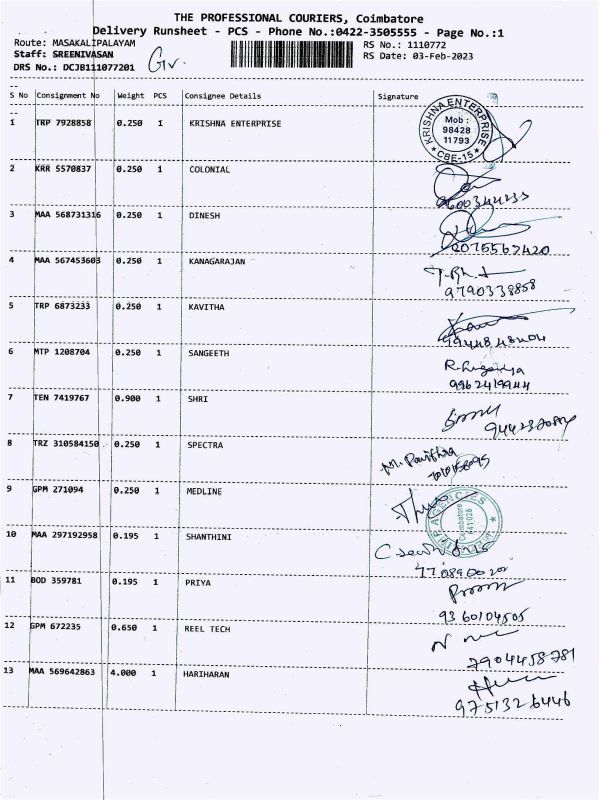 THE PROFESSIONAL COURIERS, Coimbatore
Delivery Runsheet - PCS - Phone No.:0422-3505555 - Page No.:1
Route: MASAKALIPALAYAM
RS No.: 1110772
Staff: SREENIVASAN
RS Date: 03-Feb-2023
DRS No.: DCJB111077201
S No Consignment No Weight PCS Consignee Details Signature
1 TRP 7928858 0.250 1 KRISHNA ENTERPRISE
KRISHNA ENTERPRISE
Mob :
98428
11793
CBE-15
2 KRR 5570837 0.250 1 COLONIAL
3 MAA 568731316 0.250 1 DINESH
4 MAA 567453603 0.250 1 KANAGARAJAN
9790338858
5 TRP 6873233 0.250 1 KAVITHA
6 MTP 1208704 0.250 1 SANGEETH
9962419944
7 TEN 7419767 0.900 1 SHRI
8 TRZ 310584150 0.250 1 SPECTRA
9 GPM 271094 0.250 1 MEDLINE
AGENCIES
Coimbatore
641028
10 MAA 297192958 0.195 1 SHANTHINI
11 BOD 359781 0.195 1 PRIYA
9360104505
12 GPM 672235 0.650 1 REEL TECH
7904458781
13 MAA 569642863 4.000 1 HARIHARAN
9751326446